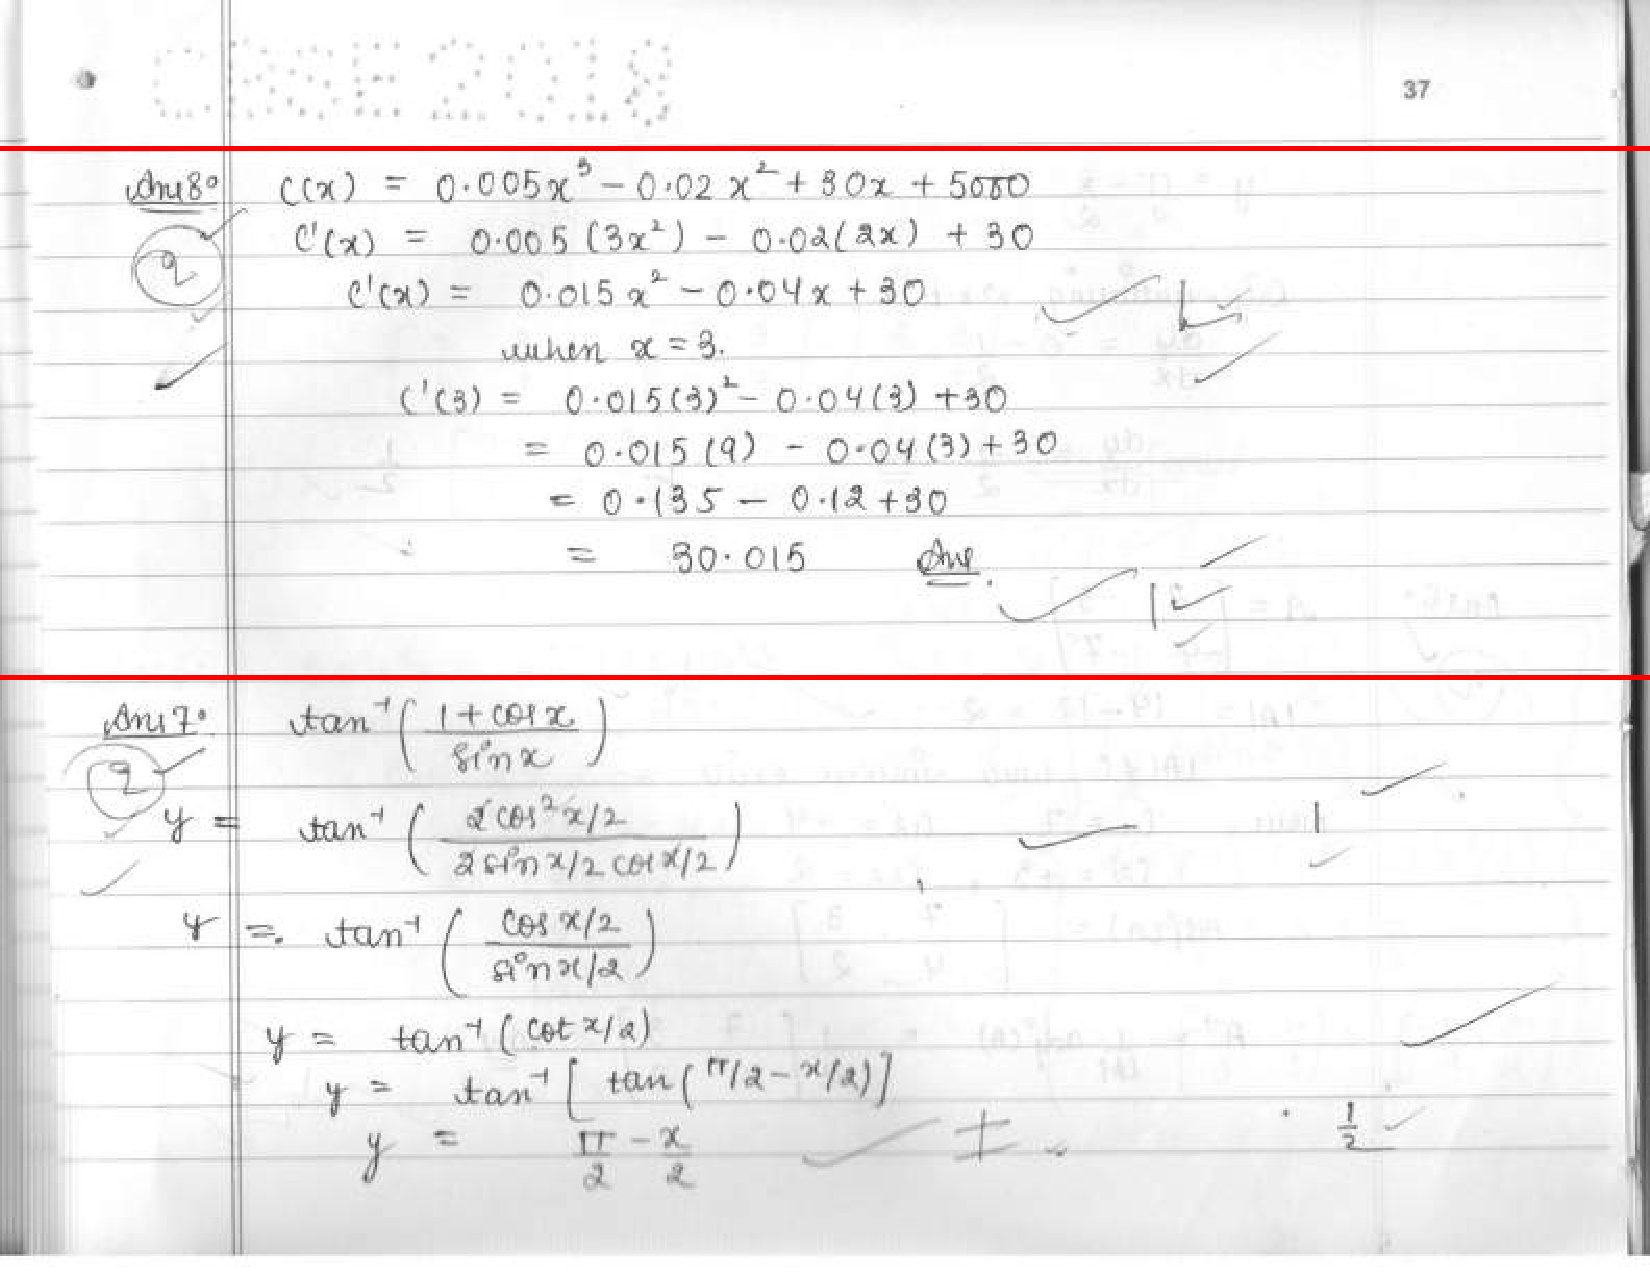 CBSE 2018
37
Ans 8° C(x) = 0.005x³ - 0.02x² + 30x + 5000
2
C'(x) = 0.005(3x²) - 0.02(2x) + 30
C'(x) = 0.015x² - 0.04x + 30
1
when x = 3.
C'(3) = 0.015(3)² - 0.04(3) + 30
= 0.015(9) - 0.04(3) + 30
= 0.135 - 0.12 + 30
= 30.015 Ans.
1
Ans 7° tan⁻¹(1 + cos x / sin x)
2
y = tan⁻¹(2 cos² x/2 / 2 sin x/2 cos x/2)
1
y = tan⁻¹(cos x/2 / sin x/2)
y = tan⁻¹(cot x/2)
y = tan⁻¹[tan(π/2 - x/2)]
y = π/2 - x/2
1/2